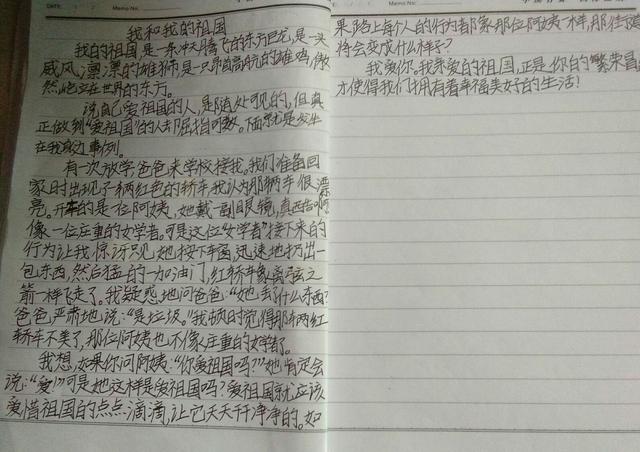 DATE
Memo No.
Memo No.
我和我的祖国
我的祖国是一条冲天腾飞的东方巨龙,是一头
威风凛凛的雄狮,是一只昂首高亢的雄鸡,傲
然屹立在世界的东方。
说自己爱祖国的人,是随处可见的,但真
正做到“爱祖国”的人却屈指可数。下面就是发生
在我身边事例。
有一次放学,爸爸来学校接我。我们准备回
家时出现了一辆红色的轿车我认为那辆车很漂
亮。开车的是一位阿姨,她戴一副眼镜,真
像一位庄重的女学者。可是这位“女学者”接下来的
行为让我惊讶只见她按下车窗,迅速地扔出一
包东西,然后猛的一加油门,红轿车像离弦之
箭一样飞走了。我疑惑地问爸爸:“她丢什么东西?”
爸爸严肃地说:“是垃圾。”我顿时觉得那辆红
轿车不美了,那位阿姨也不像庄重的女学者了。
我想,如果你问阿姨:“你爱祖国吗?”她肯定会
说:“爱!”可是她这样是爱祖国吗?爱祖国就应该
爱惜祖国的点点滴滴,让它天天干干净净的。如
果路上每个人的行为都像那位阿姨一样,那
将会变成什么样子?
我爱你。我亲爱的祖国,正是你的繁荣昌
才使得我们拥有着幸福美好的生活!